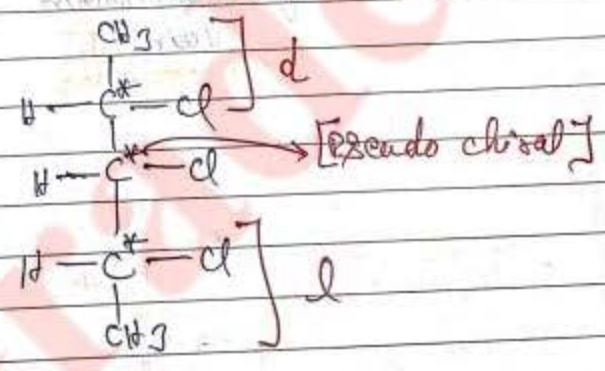 CH3
H — C* — Cl ] d
H — C* — Cl → [pseudo chiral]
H — C* — Cl ] l
CH3